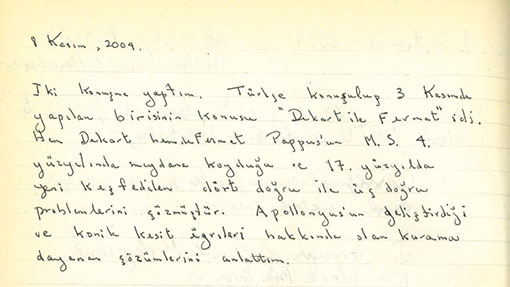 8 Kasım, 2009.
İki konuşma yaptım. Türkçe konuşuluş 3 Kasımda
yapılan birisinin konusu "Dekart ile Fermat" idi.
Hem Dekart hemde Fermet Pappus'un M. S. 4.
yüzyılında meydana koyduğu ve 17. yüzyılda
yeni keşfedilen dört doğru ile üç doğru
problemlerini çözmüştür. Apollonyus'un geliştirdiği
ve konik kesit eğrileri hakkında olan kurama
dayanan çözümlerini anlattım.